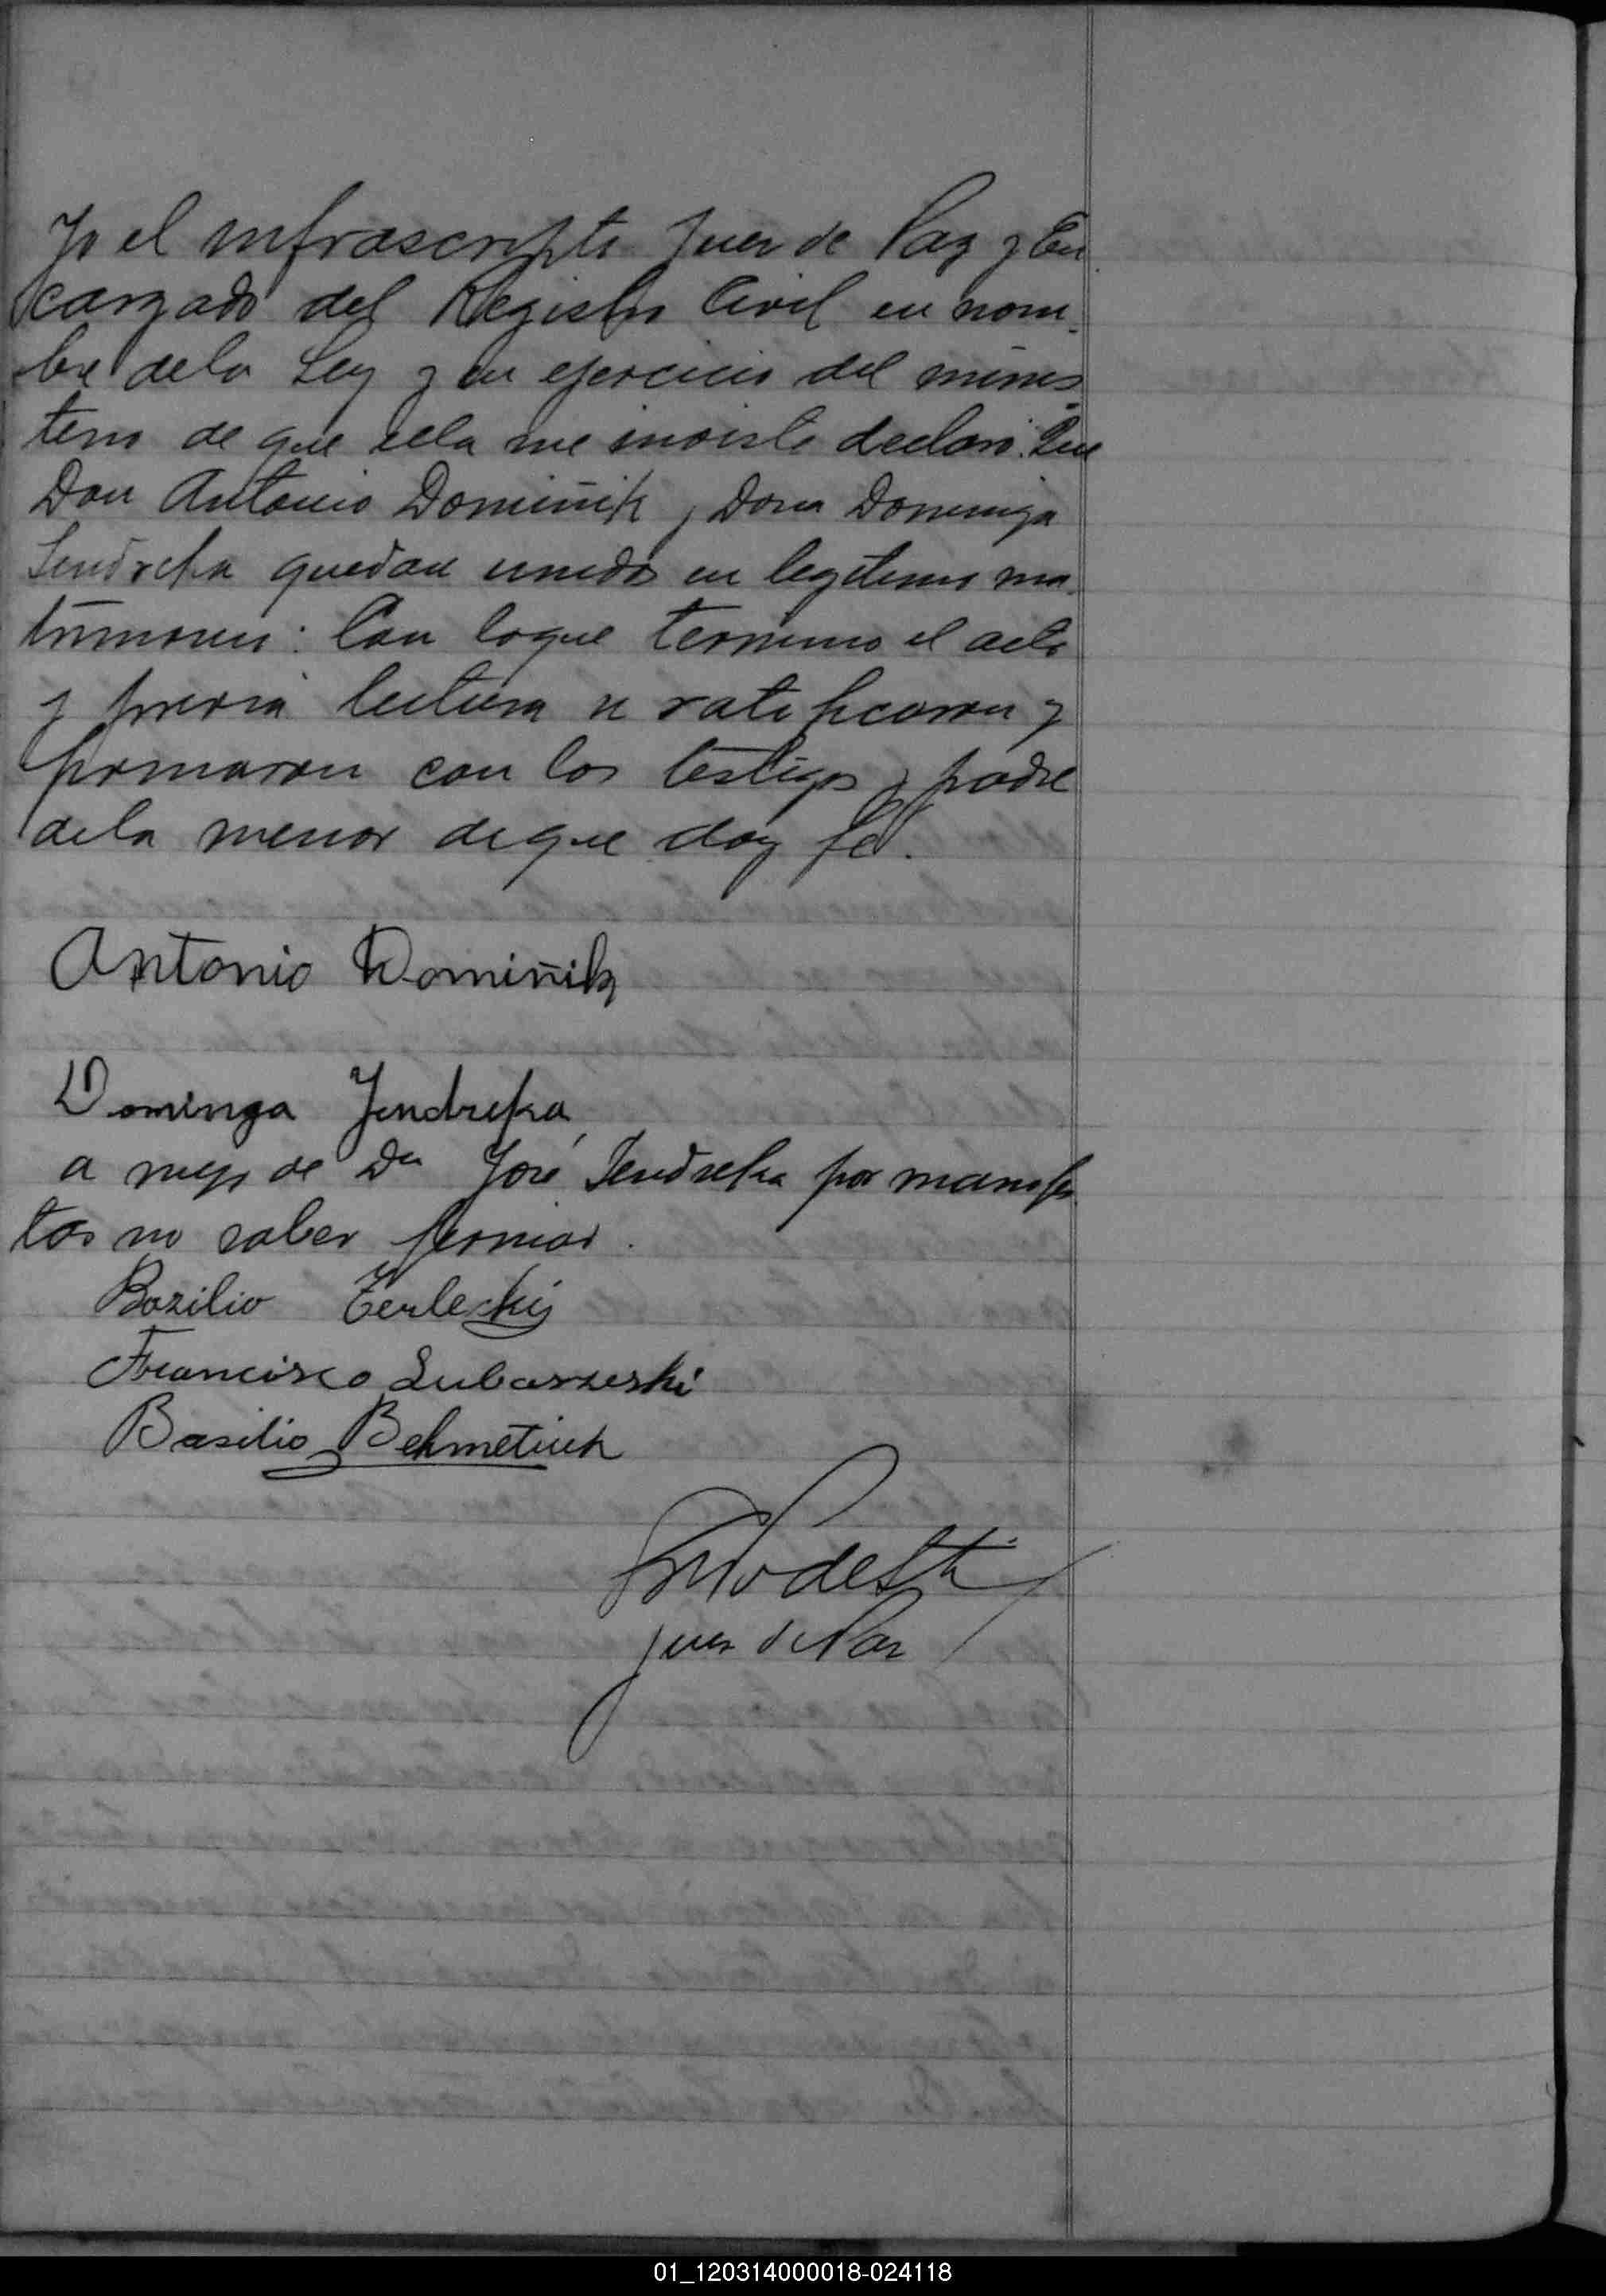 Yo el infrascripto Juez de Paz y En
cargado del Registro Civil en nom-
bre de la Ley y en ejercicio del minis-
terio de que ella me inviste declaro: Que
Don Antonio Domiñik y Doña Dominga
Jendreka quedan unidos en legitimo ma-
trimonio: Con loque termino el acto
y previa lectura se ratificaron y
firmaron con los testigos y padre
dela menor deque doy fé.
Antonio Domiñik
Dominga Jendreka
a ruego de Dn José Jendreka por manifes
tar no saber firmar.
Bazilio Terlecki
Francisco Lubaszeski
Basilio
Juez de Paz
01_120314000018-024118